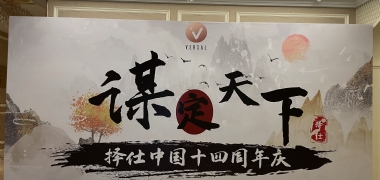 VERSAL
谋定天下
择仕
择仕中国十四周年庆